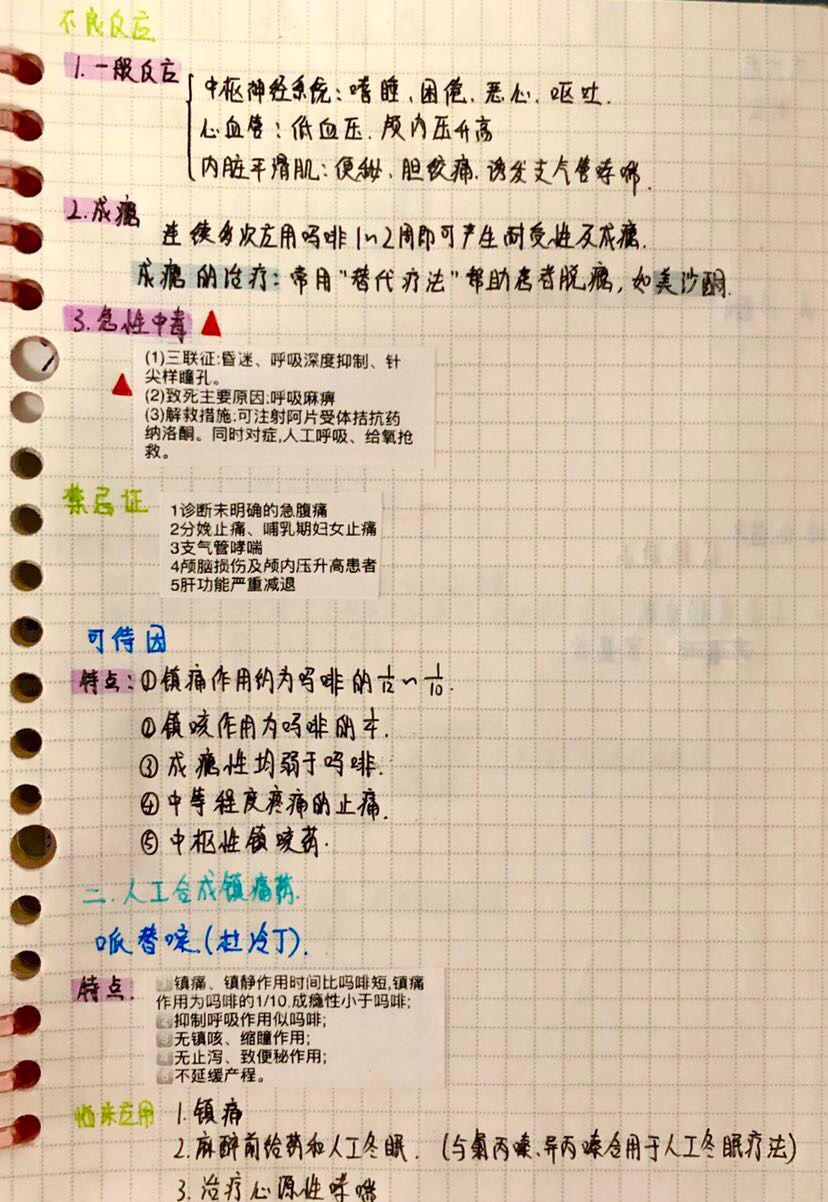 不良反应
1.一般反应
中枢神经系统：嗜睡、困倦、恶心、呕吐.
心血管：低血压.颅内压升高
内脏平滑肌：便秘、胆绞痛.诱发支气管哮喘.
2.成瘾
连续多次应用吗啡1~2周即可产生耐受性及成瘾.
成瘾的治疗：常用“替代疗法”帮助患者脱瘾，如美沙酮.
3.急性中毒
(1)三联征:昏迷、呼吸深度抑制、针
尖样瞳孔。
(2)致死主要原因:呼吸麻痹
(3)解救措施:可注射阿片受体拮抗药
纳洛酮。同时对症,人工呼吸、给氧抢
救。
禁忌证
1诊断未明确的急腹痛
2分娩止痛、哺乳期妇女止痛
3支气管哮喘
4颅脑损伤及颅内压升高患者
5肝功能严重减退
可待因
特点：①镇痛作用约为吗啡的1/12~1/10.
②镇咳作用为吗啡的1/4.
③成瘾性均弱于吗啡.
④中等程度疼痛的止痛.
⑤中枢性镇咳药.
二.人工合成镇痛药.
哌替啶(杜冷丁).
特点.
1镇痛、镇静作用时间比吗啡短,镇痛
作用为吗啡的1/10.成瘾性小于吗啡;
2抑制呼吸作用似吗啡;
3无镇咳、缩瞳作用;
4无止泻、致便秘作用;
5不延缓产程。
临床应用 1.镇痛
2.麻醉前给药和人工冬眠.(与氯丙嗪、异丙嗪合用于人工冬眠疗法)
3.治疗心源性哮喘